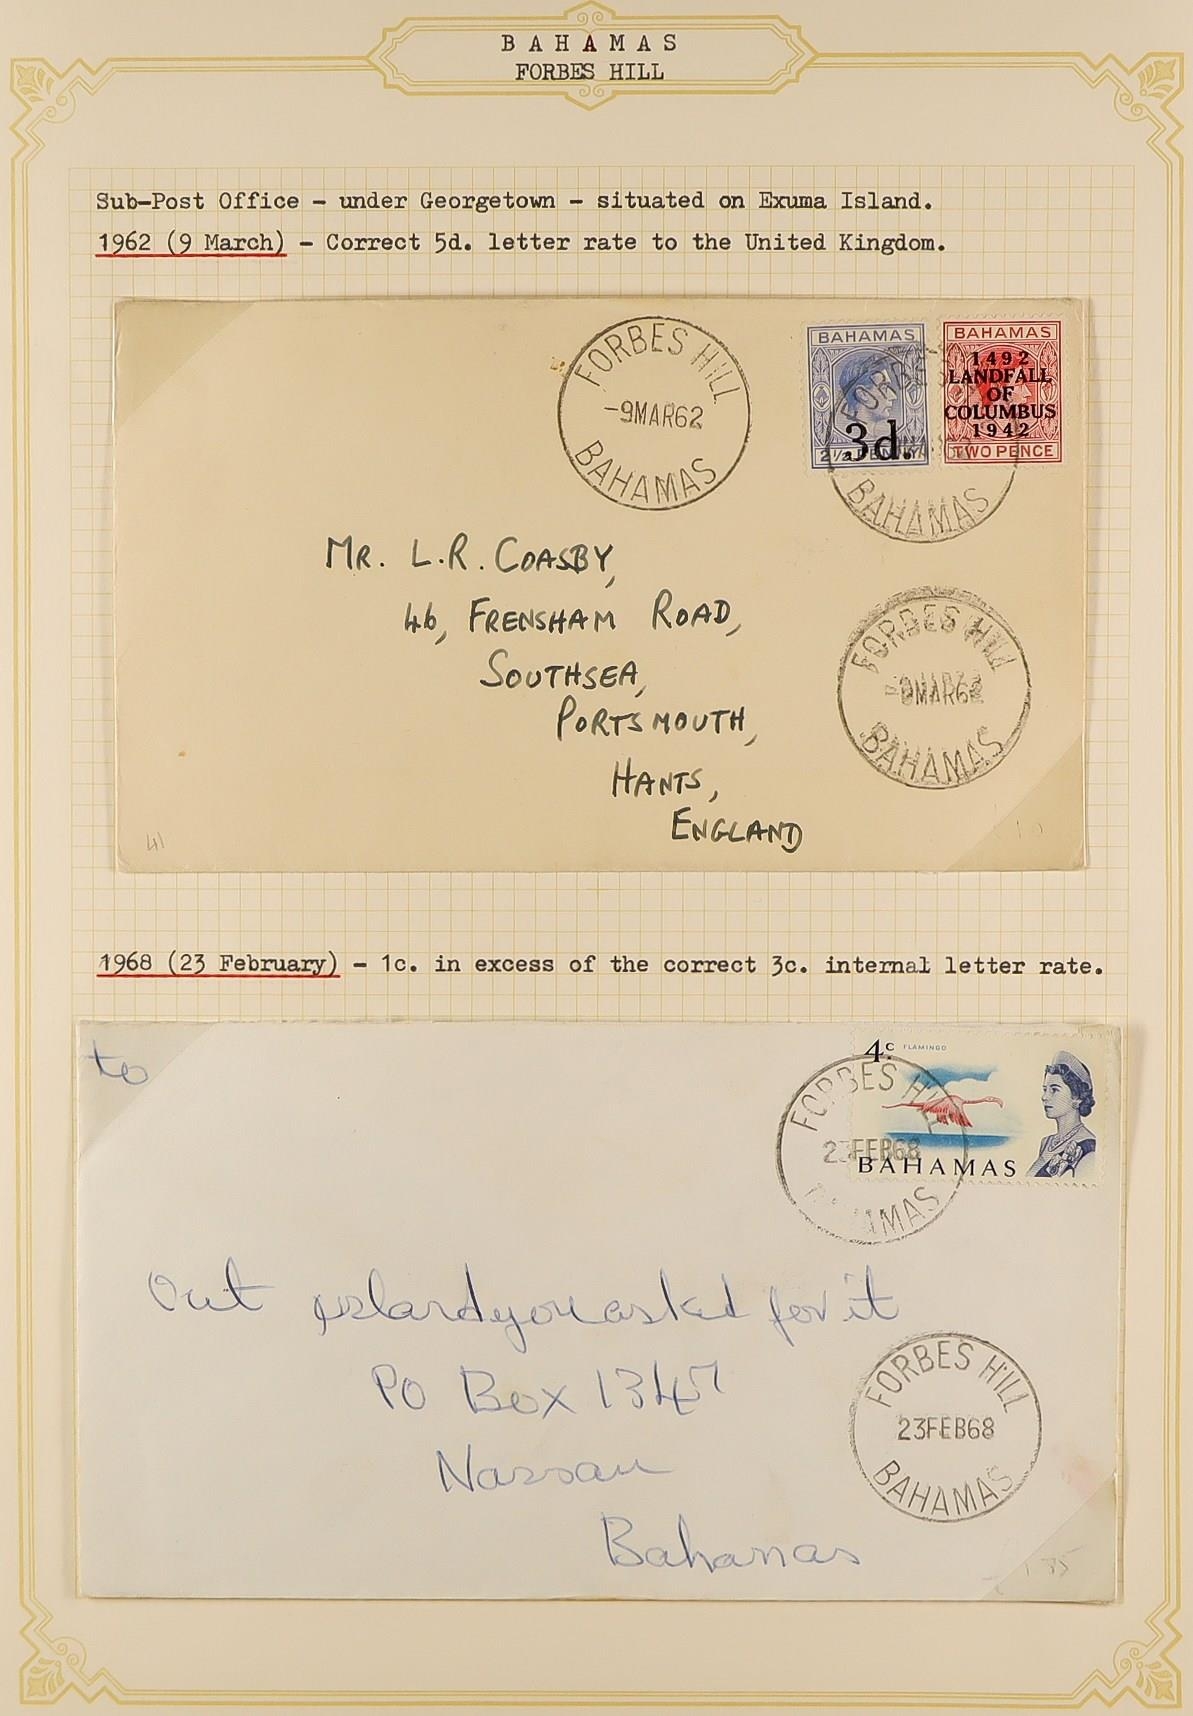 BAHAMAS
FORBES HILL
Sub-Post Office - under Georgetown - situated on Exuma Island.
1962 (9 March) - Correct 5d. letter rate to the United Kingdom.
FORBES HILL
-9MAR62
BAHAMAS
BAHAMAS
3d.
2½ PENNY
BAHAMAS
1492
LANDFALL
OF
COLUMBUS
1942
TWO PENCE
BAHAMAS
MR. L.R. COASBY,
46, FRENSHAM ROAD,
SOUTHSEA,
PORTSMOUTH,
HANTS,
ENGLAND
FORBES HILL
-9MAR62
BAHAMAS
41
1968 (23 February) - 1c. in excess of the correct 3c. internal letter rate.
to
4c FLAMINGO
BAHAMAS
FORBES HILL
23FEB68
BAHAMAS
Out islandyouasked for it
PO Box 1347
Nassau
Bahamas
FORBES HILL
23FEB68
BAHAMAS